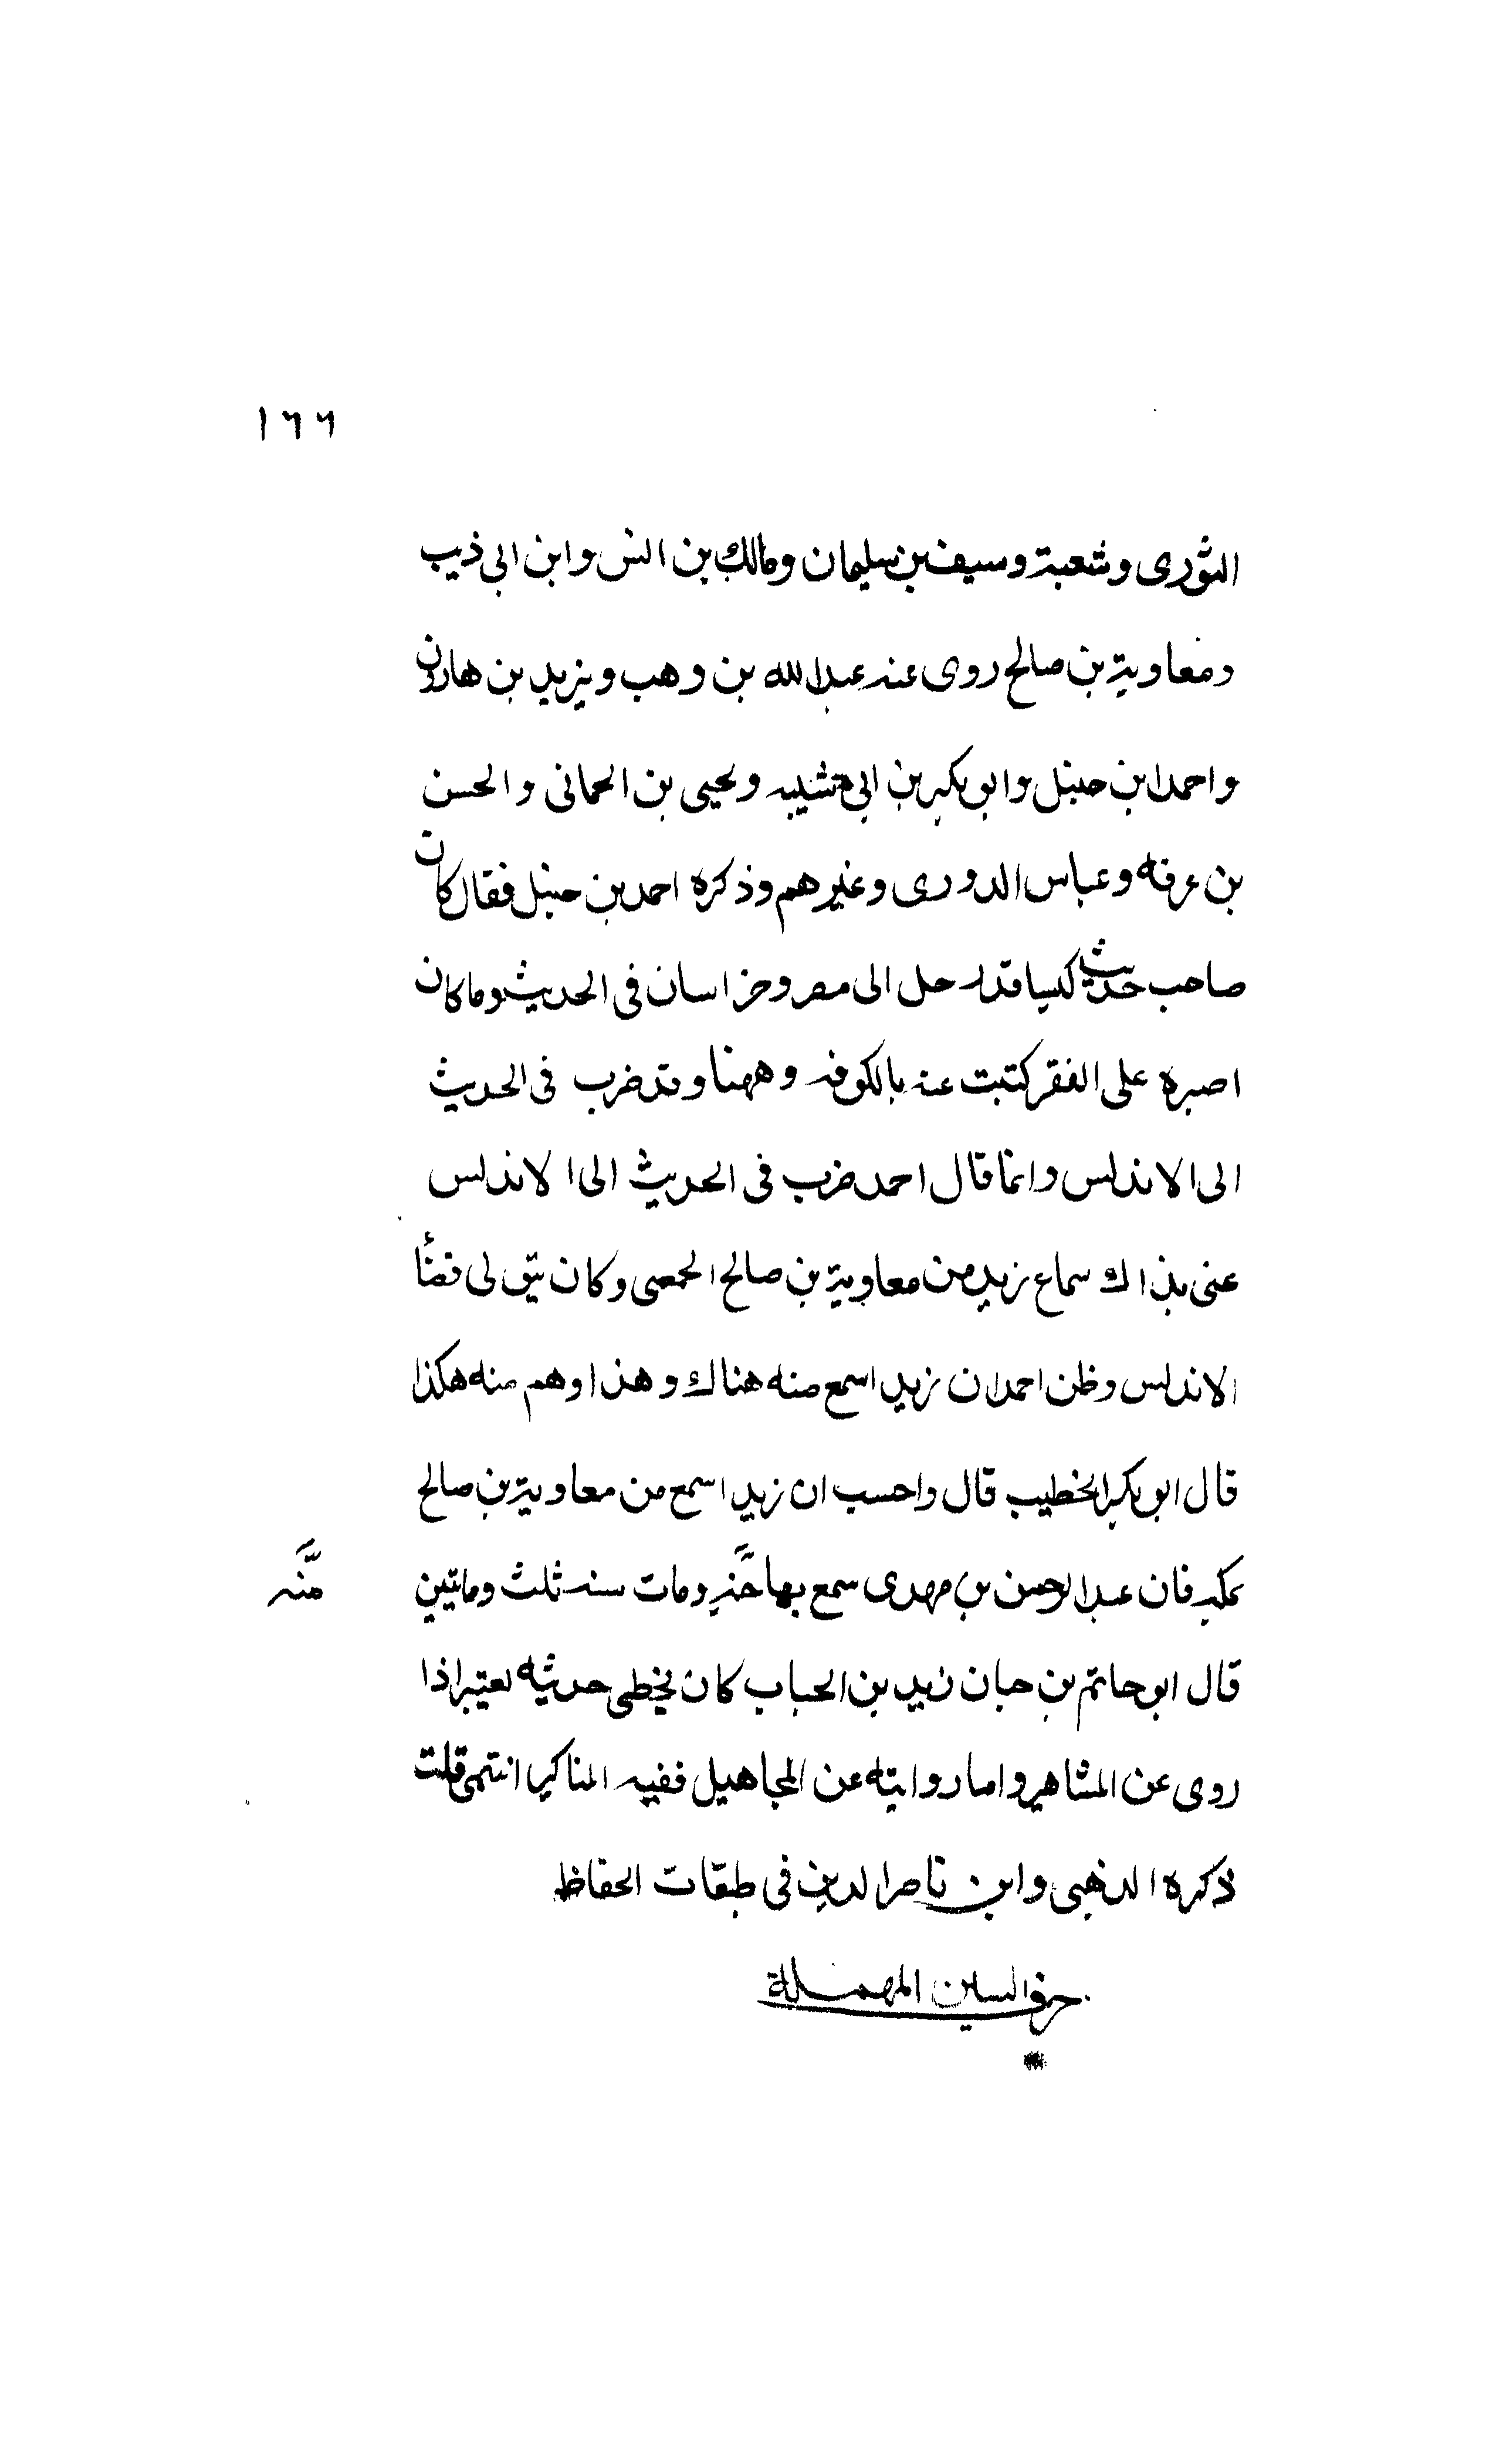 ١٦٦
الثورى وشعبة وسيف بن سليمان ومالك بن انس وابن ابى ذيب
ومعاوية بن صالح روى عنه عبد الله بن وهب ويزيد بن هارون
واحمد ابن حنبل وابو بكر بن ابى شيبه ويحيى بن الحمانى والحسن
بن عرفه وعباس الدورى وغيرهم وذكره احمد بن حنبل فقال كان
صاحب حديث كيسا قد رحل الى مصر وخراسان فى الحديث وما كان
اصبره على الفقر كتبت عنه بالكوفه وههنا وقد ضرب فى الحديث
الى الاندلس وانما قال احمد ضرب فى الحديث الى الاندلس
عنى بذاك سماع زيد من معاوية بن صالح الحمصى وكان يتولى قضأ
الاندلس وظن احمد ان زيد اسمع منه هناك وهذا وهم منه هكذا
قال ابو بكر الخطيب قال واحسب ان زيد اسمع من معاوية بن صالح
بمكه فان عبد الرحمن بن مهدى سمع بها منه ومات سنه ثلث وماتين
منه
قال ابو حاتم بن حبان زيد بن الحباب كان يخطى حديثه يعتبر اذا
روى عن المشاهير واما روايته عن المجاهيل ففيه المناكير انتهى قلت
ذكره الذهبى وابن ناصر الدين فى طبقات الحفاظ
حرف السين المهملة